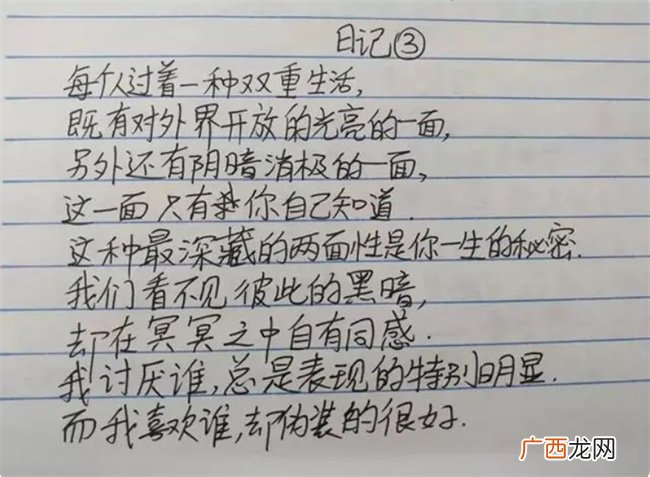 日记③
每个人过着一种双重生活,
既有对外界开放的光亮的一面,
另外还有阴暗消极的一面,
这一面只有你自己知道.
这种最深藏的两面性是你一生的秘密.
我们看不见彼此的黑暗,
却在冥冥之中自有同感.
我讨厌谁,总是表现的特别明显.
而我喜欢谁,却伪装的很好.
广西龙网